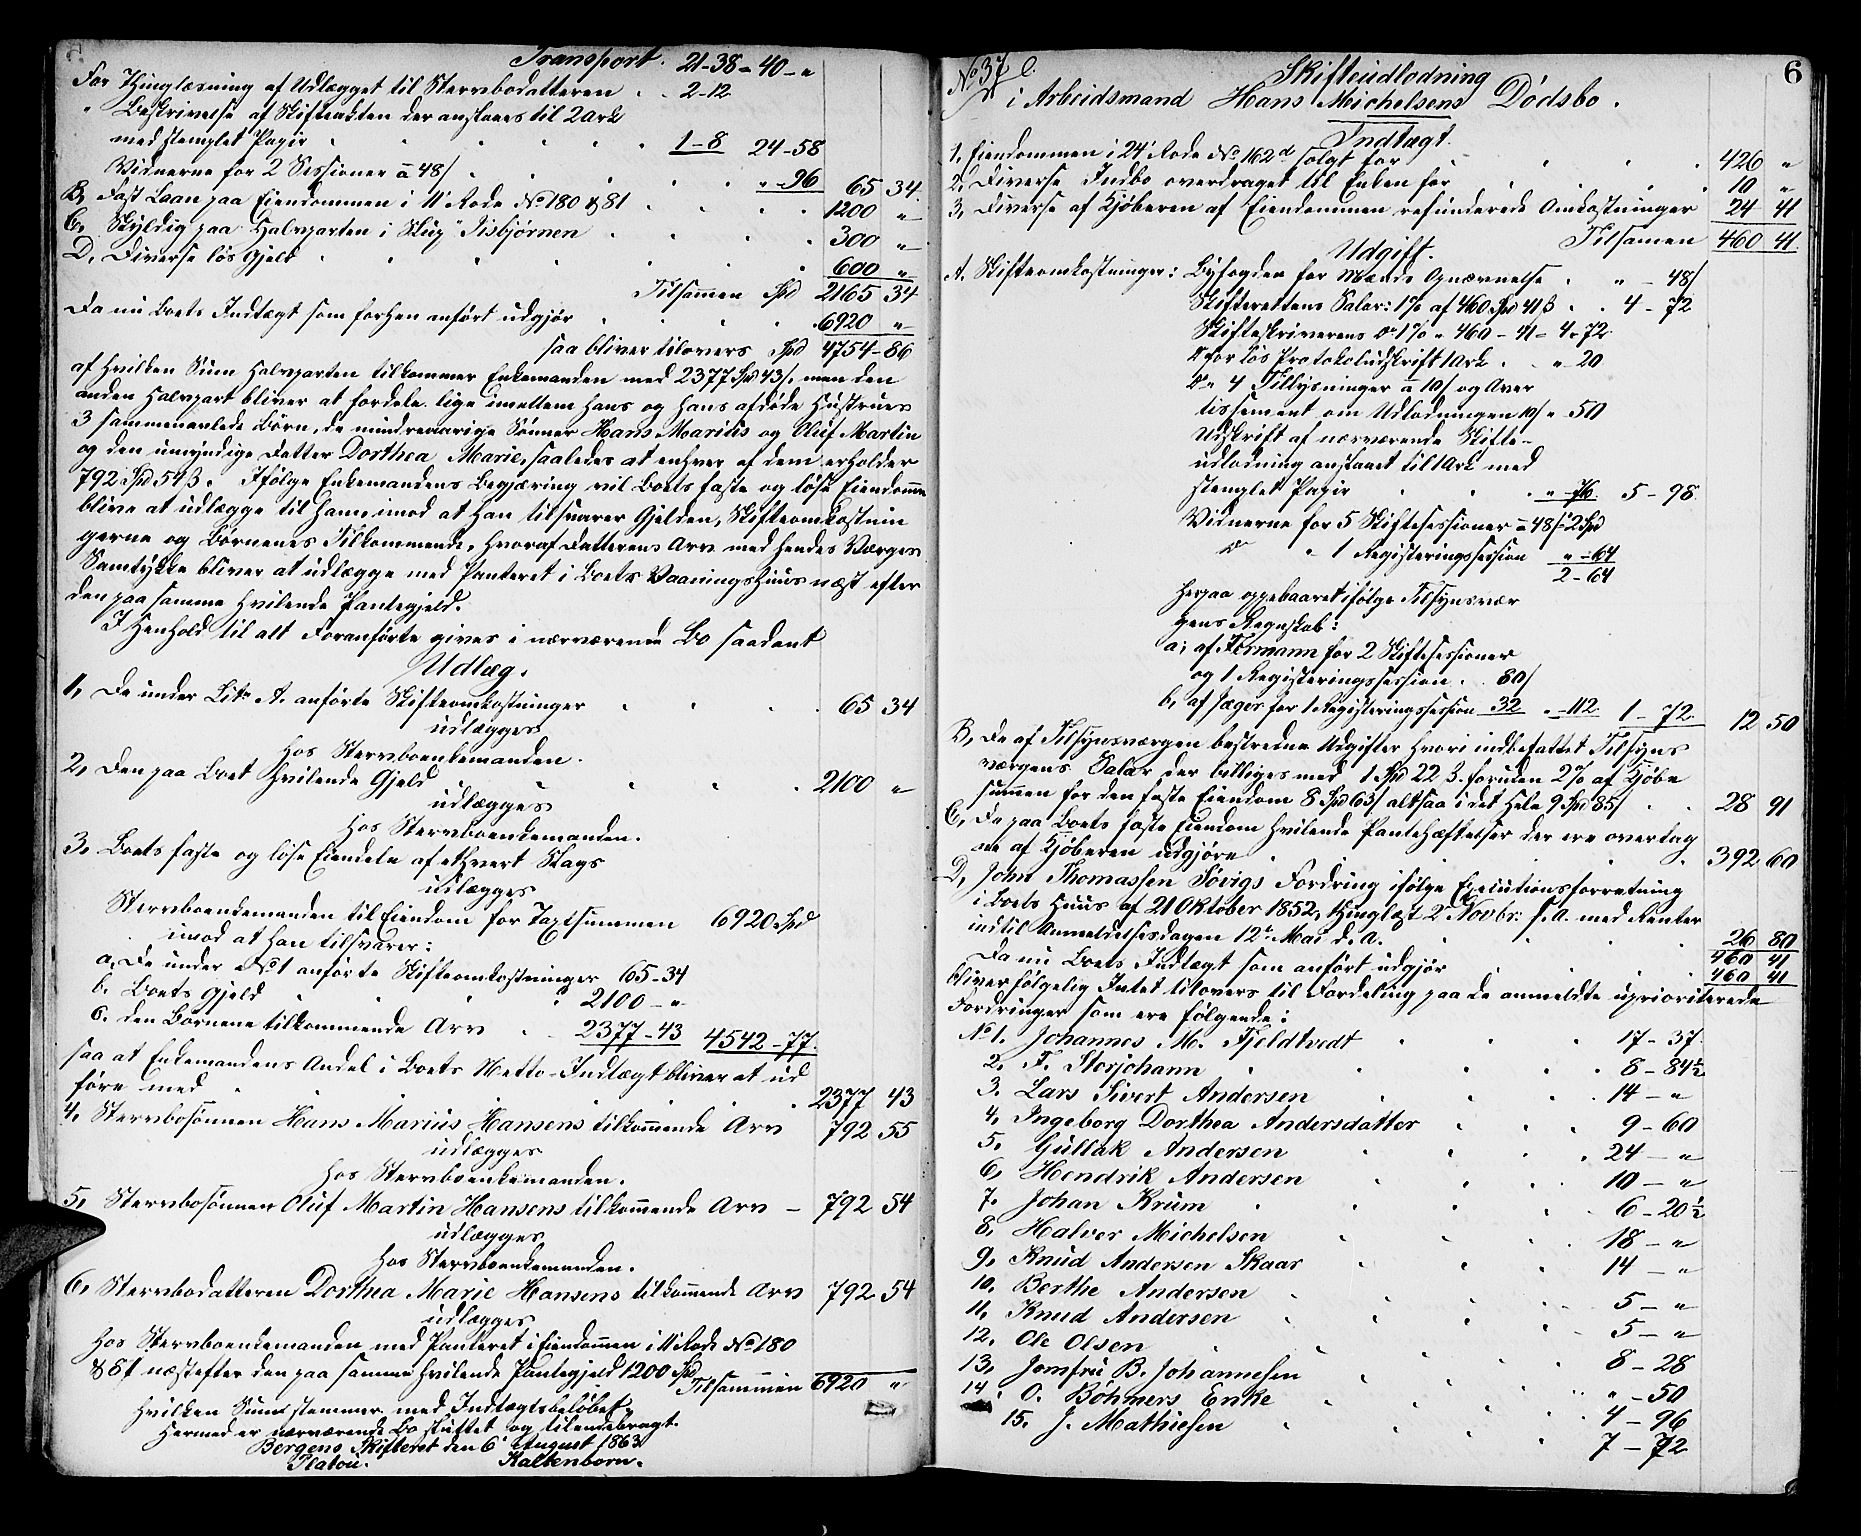 Transport. 21-38 - 40 - "
For Thinglæsning af Udlægget til Stervbodatteren . . 2-12
" Beskrivelse af Skifteakten der ansloges til 2 Ark
med stemplet Papir . . . . . 1-8 24-58
Vidnerne for 2 Sessioner à 48/ . . . . " - 96 65 34.
B, Fast Laan paa Eiendommen i 11' Rode No 180 & 81 . . . 1200 "
C, Skyldig paa Halvparten i Skup "Iisbjørnen . . . 300 "
D, Diverse løs Gjeld . . . . . 600 "
Tilsammen Spd 2165 34
Da nu Boets Indtægt som forhen anført udgjør . . . 6920 "
saa bliver tilovers Spd 4754-86
af hvilken Sum Halvparten tilkommer Enkemanden med 2377 Spd 43/. men den
anden Halvpart bliver at fordele lige imellem hans og hans afdøde Hustrues
3 sammenavlede Børn, de mindreaarige Sønner Hans Marius og Oluf Martin
og den umyndige Datter Dorthea Marie, saaledes at enhver af dem erholder
792 Spd 54 β. Ifølge Enkemandens Begjæring vil Boets faste og løse Eiendomme
blive at udlægge til ham imod at han tilsvarer Gjelden, Skifteomkostnin
gerne og Børnenes Tilkommende, hvoraf Datterens Arv med hendes Værges
Samtykke bliver at udlægge med Panteret i Boets Vaaningshuus næst efter
den paa samme hvilende Pantegjeld.
I Henhold til alt Foranførte gives i nærværende Bo saadant
Udlæg.
1, De under Litr A. anførte Skifteomkostninger . . . 65 34
udlægges
hos Stervboenkemanden.
2, Den paa Boet hvilende Gjeld . . . . 2100 "
udlægges
hos Stervboenkemanden.
3, Boets faste og løse Eiendele af ethvert Slags
udlægges
Stervboenkemanden til Eiendom for Taxtsummen 6920 Spd
imod at han tilsvarer:
a, De under No 1 anførte Skifteomkostninger 65-34
b. Boets Gjeld . . . 2100 - "
c. den Børnene tilkommende Arv . 2377-43 4542-77.
saa at Enkemandens Andel i Boets Netto-Indtægt bliver at ud
føre med . . . . . 2377 43
4, Stervbosønnen Hans Marius Hansens tilkommende Arv 792 55
udlægges
hos Stervboenkemanden.
5, Stervbosønnen Oluf Martin Hansens tilkommende Arv - 792 54
udlægges
hos Stervboenkemanden.
6, Stervbodatteren Dorthea Marie Hansens tilkommende Arv 792 54
udlægges
hos Stervboenkemanden med Panteret i Eiendommen i 11 Rode No 180
& 81 næstefter den paa samme hvilende Pantegjeld 1200 Spd
Tilsammen 6920 "
hvilken Sum stemmer med Indtægtsbeløbet.
Hermed er nærværende Bo sluttet og tilendebragt.
Bergens Skifteret den 6' August 1863
Platou. Kaltenborn.
6
No 37 C. Skifteudlodning
i Arbeidsmand Hans Michelsens Dødsbo.
Indtægt.
1, Eiendommen i 24' Rode No 162d solgt for . . . . 426 "
2, Diverse Indbo overdraget til Enken for . . . . 10 "
3, Diverse af Kjøberen af Eiendommen refunderede Omkostninger 24 41
Tilsamen 460 41.
Udgift.
A. Skifteomkostninger: Byfogden for Mænds Opnævnelse . " - 48/
Skifterettens Salar: 1% af 460 Spd 41β . . 4 - 72
Skifteskriverens do 1% " 460 - 41 - 4 - 72.
do for løs Protokoludskrift 1 Ark . . " - 20
do " 4 Tillysninger à 10/ og Aver
tissement om Udlodningen 10/ " - 50
Udskrift af nærværende Skifte-
udlodning anslaaet til 1 Ark med
stemplet Papir . . . " - 76. 5 - 98.
Vidnerne for 5 Skiftesessioner à 48/ - 2 Spd
do " 1 Registeringssession " - 64
2 - 64
Herpaa oppebaaret ifølge Tilsynsvær
gens Regnskab:
a, af Formann for 2 Skiftesessioner
og 1 Registeringssession . . 80/
b, af Jæger for 1 Registeringssession 32 . - 112. 1 - 72. 12 50
B, De af Tilsynsværgen bestredne Udgifter hvori indbefattet Tilsyns
værgens Salar der billiges med 1 Spd 22 β. foruden 2% af Kjøbe
summen for den faste Eiendom 8 Spd 63/ altsaa i det Hele 9 Spd 85/ . . 28 91
C, De paa Boets faste Eiendom hvilende Pantehæftelser der ere overtag
ne af Kjøberen udgjøre . . . . . 392. 60
D, John Thomassen Søvigs Fordring ifølge Executionsforretning
i Boets Huus af 21 Oktober 1852, thinglæst 2 Novbr: s. A. med Renter
indtil Anmeldelsesdagen 12te Mai d. A. . . . . 26 80
460 41
Da nu Boets Indtægt som anført udgjør . . . 460 41
bliver følgelig Intet tilovers til Fordeling paa de anmeldte uprioriterede
Fordringer som ere følgende:
No 1. Johannes M. Fjeldtvedt . . . 17 - 37.
2. F. Storjohann . . . . 8 - 84½
3. Lars Sivert Andersen . . . 14 - "
4, Ingeborg Dorthea Andersdatter . . . 9 - 60
5, Gullak Andersen . . . 24 - "
6, Hendrik Andersen . . . 10 - "
7. Johan Krum . . . . 6 - 20½
8, Halver Michelsen . . . 18 - "
9, Knud Andersen Skaar . . . 14 - "
10. Berthe Andersen . . . 5 - "
11, Knud Andersen . . . . 5 - "
12, Ole Olsen . . . . 8 - 28
13, Jomfru B. Johannesen . . . " - 50
14. O. Böhmers Enke . . . 4 - 96
15. J. Mathiesen . . . 7 - 72